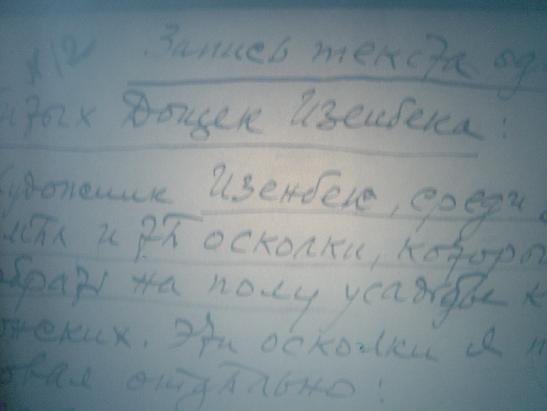 Запись текста од
битых Дощек Изенбека:
художник Изенбек, среди
и тѣ осколки, которы
собрать на полу усадьбы к
онских. Эти осколки я п
овал отдѣльно: